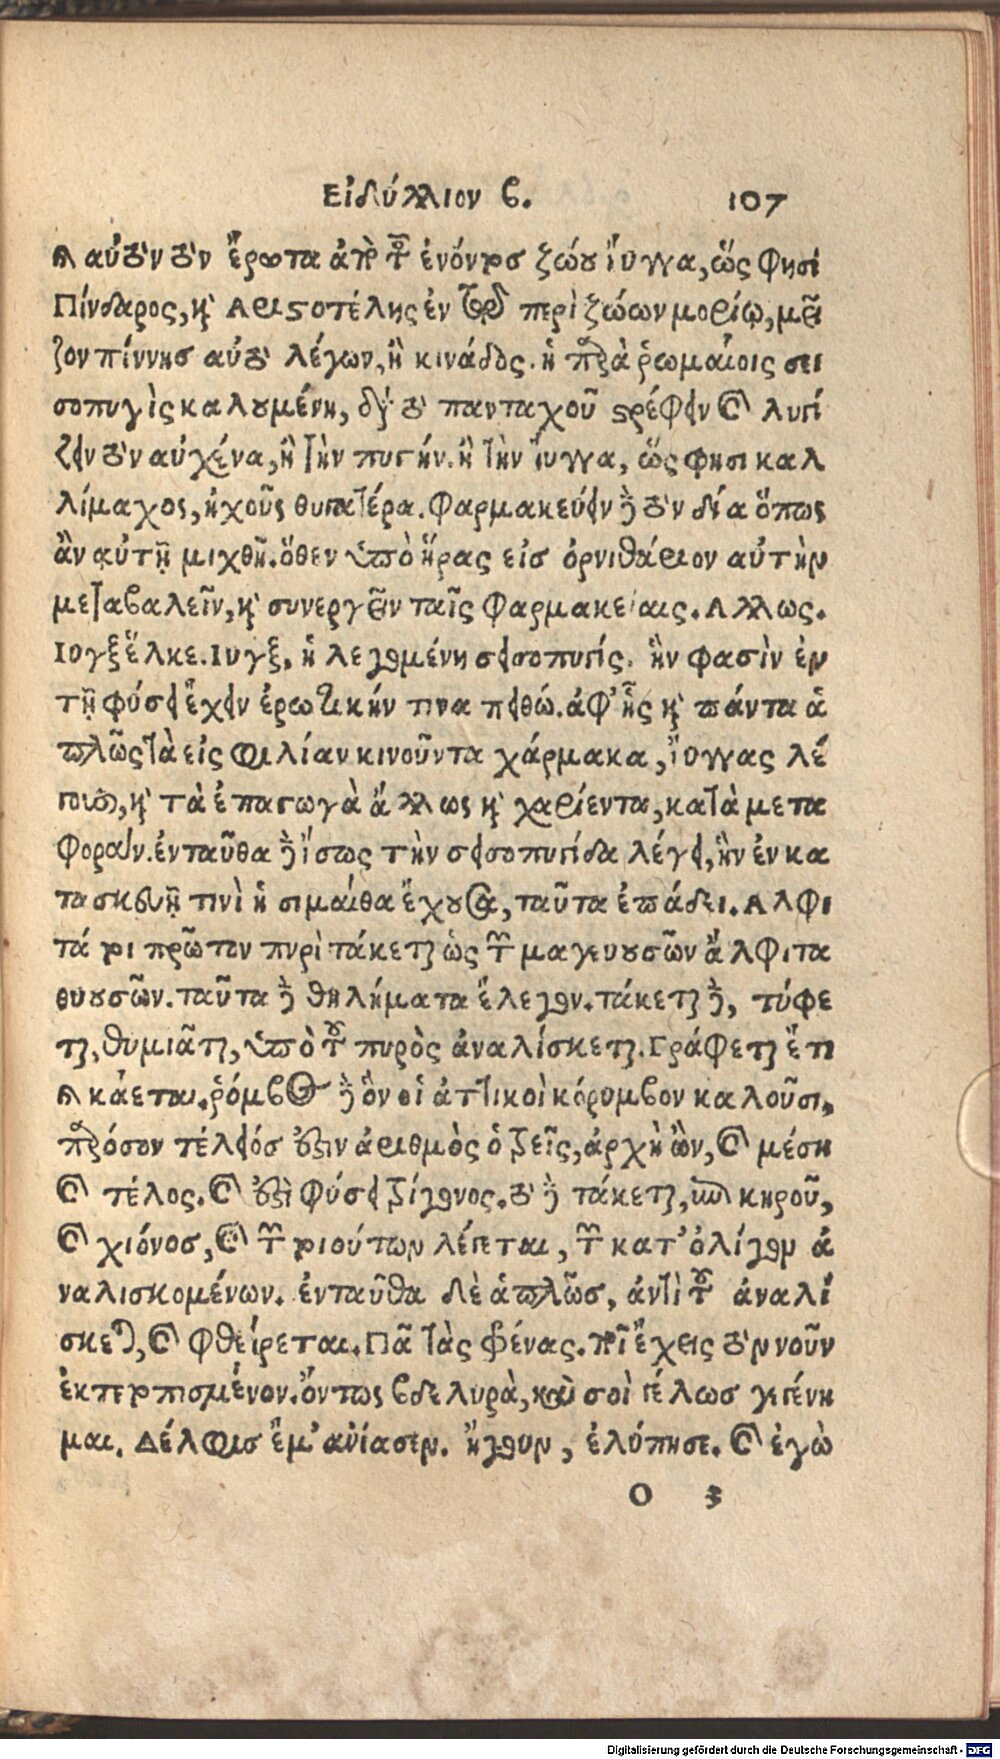 Εἰδύλλιον β. 107
καὶ αὐτὸν τὸν ἔρωτα ἀπὸ τῆς ἐνόντος ζώου ἴυγγα, ὥς φησι
Πίνδαρος, καὶ Αριστοτέλης ἐν τῷ περὶ ζώων μορίῳ, μεῖ
ζον πίννης αὐτὸ λέγων, ἢ κινάδος. ἡ παρὰ ῥωμαίοις σει
σοπυγὶς καλουμένη, διὰ τὸ πανταχοῦ στρέφειν καὶ λυγί
ζειν τὸν αὐχένα, ἢ τὴν πυγήν. ἢ τὴν ἴυγγα, ὥς φησι καλ
λίμαχος, ἠχοῦς θυγατέρα. Φαρμακεύειν δὲ τὸν δία ὅπως
ἂν αὐτῇ μιχθῇ. ὅθεν ὑπὸ ἥρας εἰς ὀρνιθάριον αὐτὴν
μεταβαλεῖν, καὶ συνεργεῖν ταῖς φαρμακείαις. Αλλως.
Ιυγξ ἕλκε. Ιυγξ, ἡ λεγομένη σεισοπυγίς. ἥν φασὶν ἐν
τῇ φύσει ἔχειν ἐρωτικήν τινα πειθώ. ἀφ' ἧς καὶ πάντα ἁ
πλῶς τὰ εἰς φιλίαν κινοῦντα χάρμακα, ἴυγγας λέ
γουσι, καὶ τὰ ἐπαγωγὰ ἄλλως καὶ χαρίεντα, κατὰ μετα
φοράν. ἐνταῦθα δὲ ἴσως τὴν σεισοπυγίδα λέγει, ἣν ἐν κα
τασκευῇ τινὶ ἡ σιμαίθα ἔχουσα, ταῦτα ἐπάδει. Αλφι
τά τοι πρῶτον πυρὶ τάκεται ὡς τῶν μαγευουσῶν ἄλφιτα
θυουσῶν. ταῦτα δὲ θηλήματα ἔλεγον. τάκεται δὲ, τύφε
ται, θυμιᾶται, ὑπὸ τοῦ πυρὸς ἀναλίσκεται. Γράφεται ἔτι
καὶ κάεται. ῥόμβος δὲ ὃν οἱ ἀττικοὶ κόρυμβον καλοῦσι,
παρόσον τέλειός ἐστιν ἀριθμὸς ὁ τρεῖς, ἀρχὴ ὢν, καὶ μέση
καὶ τέλος. καὶ ἐπὶ φύσει τρίγωνος. τὸ δὲ τάκεται, ἐπὶ κηροῦ,
καὶ χιόνος, καὶ τῶν τοιούτων λέγεται, τῶν κατ' ὀλίγον ἀ
ναλισκομένων. ἐνταῦθα δὲ ἁπλῶς, ἀντὶ τοῦ ἀναλί
σκεται, καὶ φθείρεται. Πᾶ τὰς φρένας. ποῖ ἔχεις τὸν νοῦν
ἐκπεποτισμένον. ὄντως βδελυρὰ, καὶ σοὶ γέλως γεγένη
μαι. Δέλφις ἔμ' ἀνίασεν. ἤγουν, ἐλύπησε. καὶ ἐγὼ
O 3
Digitalisierung gefördert durch die Deutsche Forschungsgemeinschaft - DFG